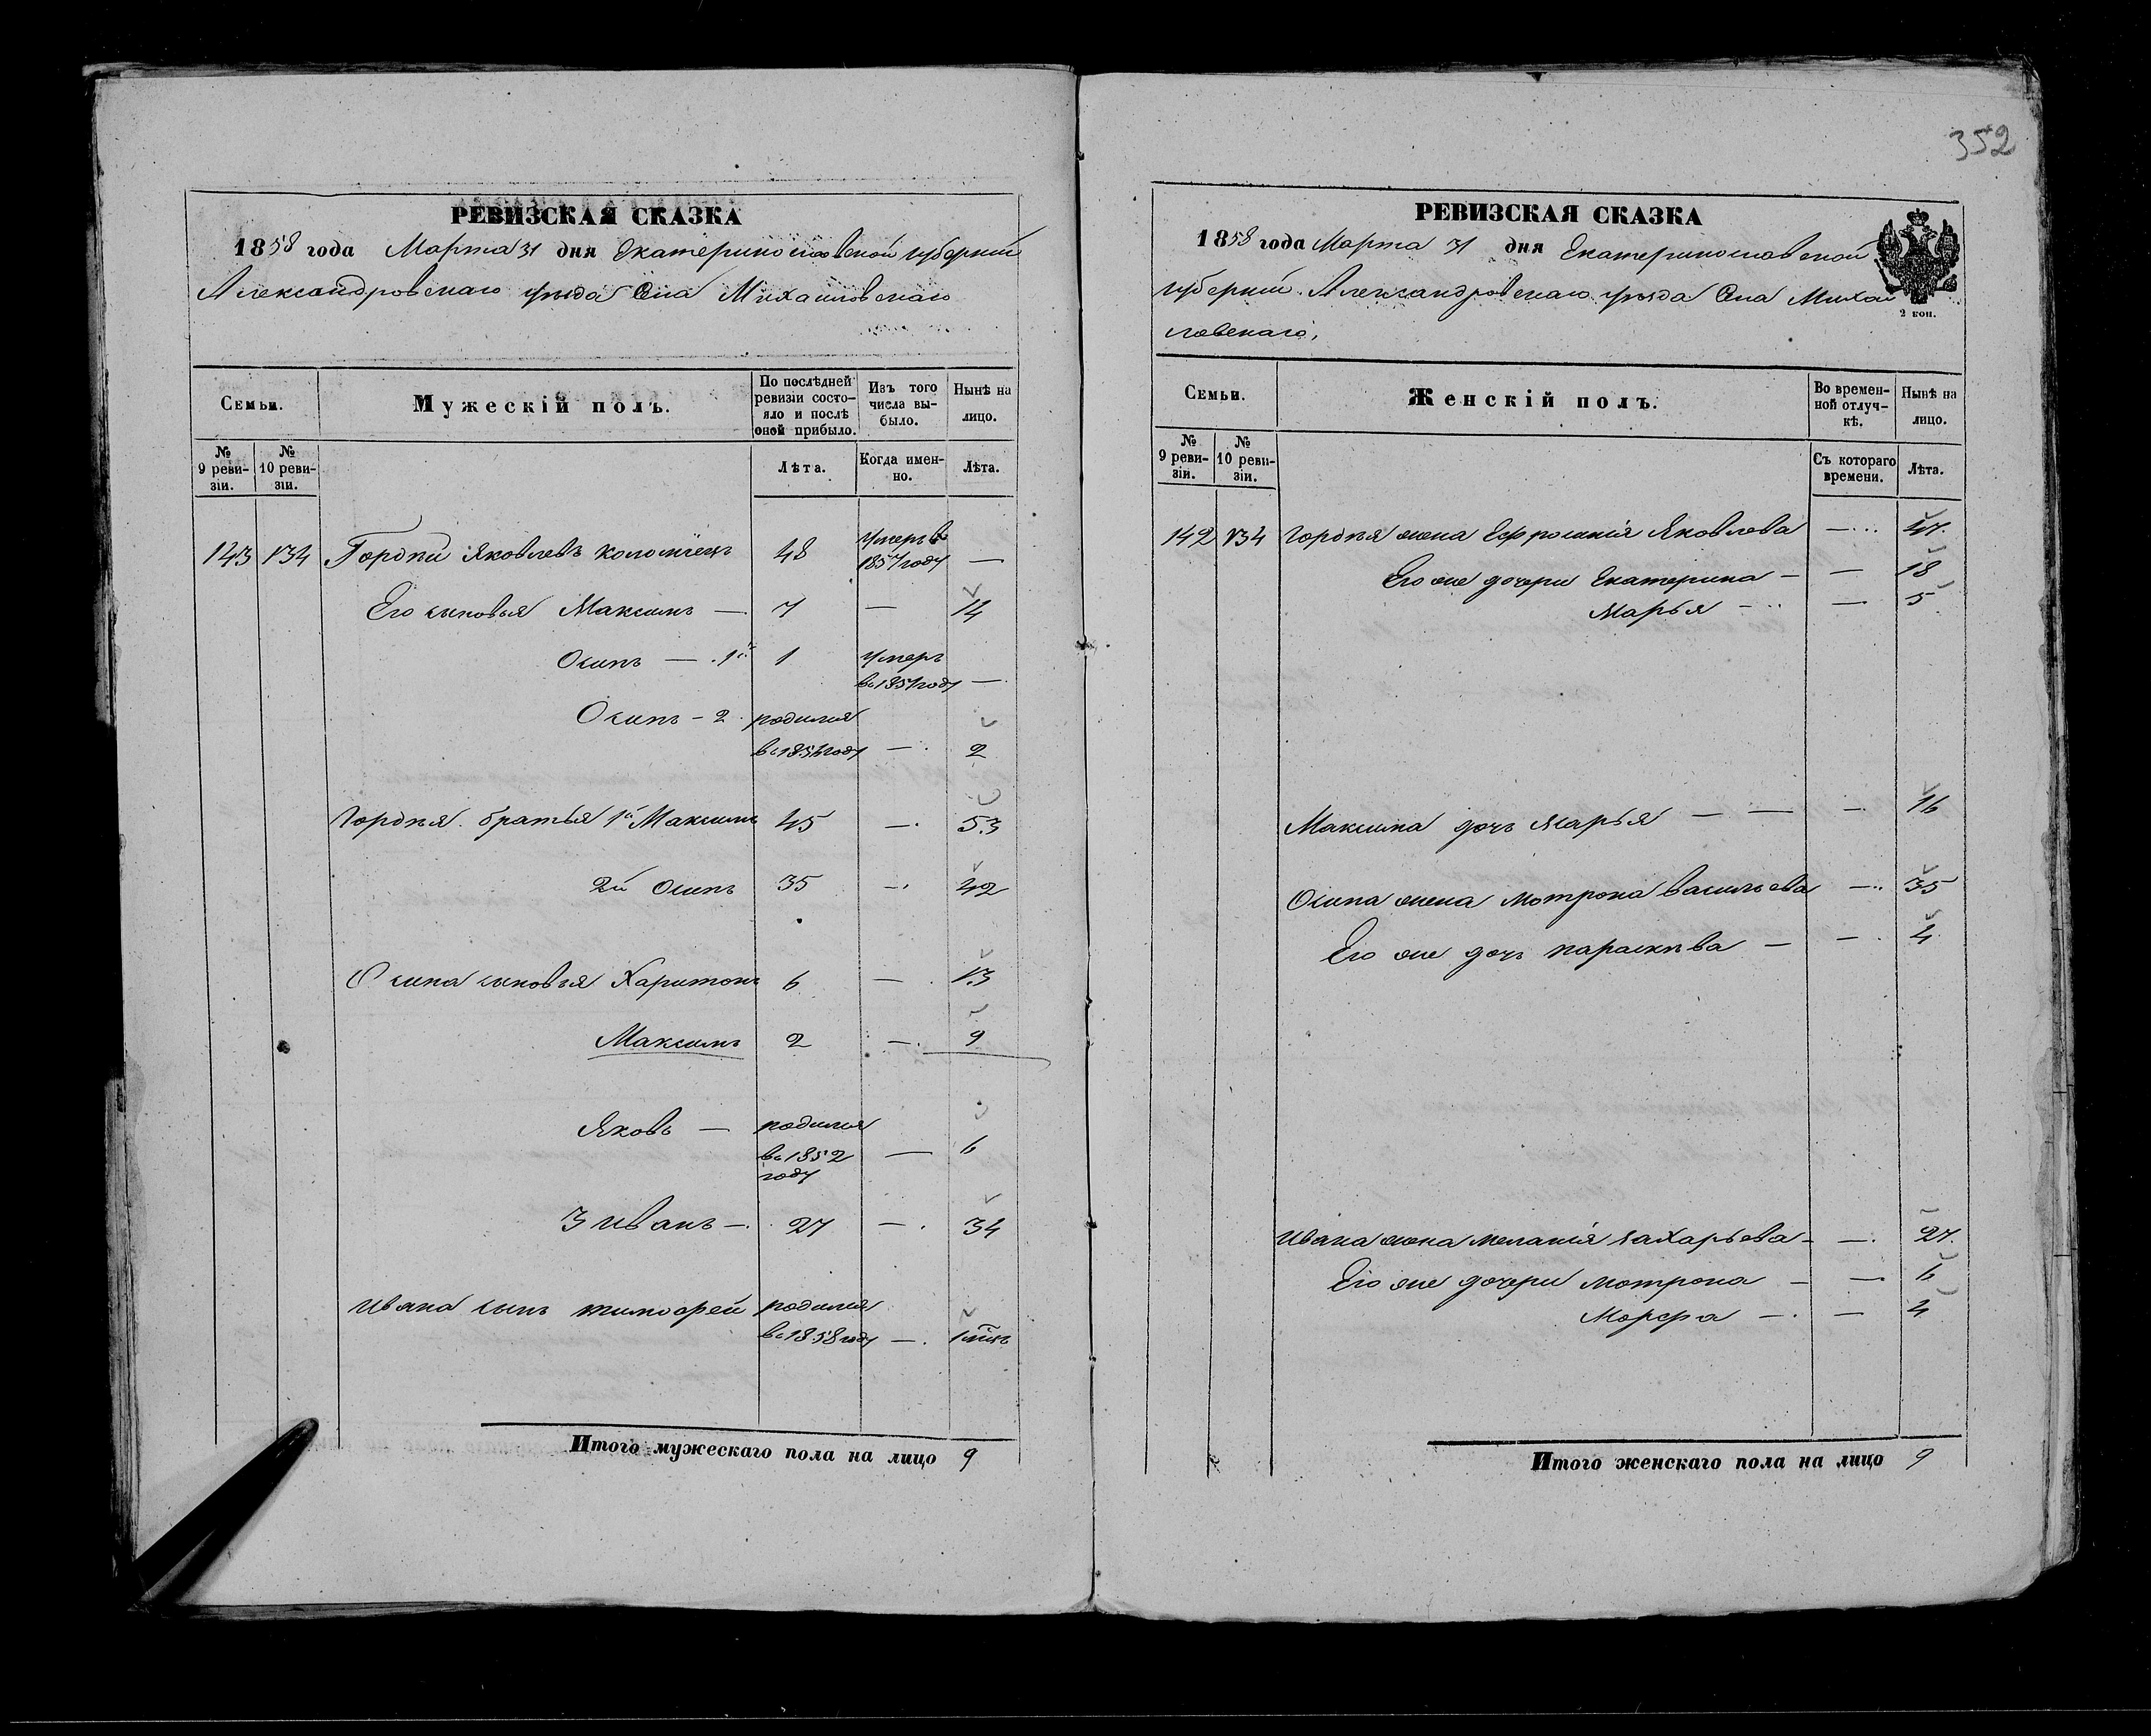 352
РЕВИЗСКАЯ СКАЗКА
1858 года Марта 31 дня Екатеринославской губерний
Александровскаго уезда Села Михаиловскаго
Семьи.
Мужескій полъ.
По послѣдней ревизіи состояло и послѣ оной прибыло.
Изъ того числа выбыло.
Нынѣ на лицо.
№ 9 ревизіи.
№ 10 ревизіи.
Лѣта.
Когда именно.
Лѣта.
143 134 Гордѣй Яковлевъ Коломіецъ 48 умеръ в 1857 году —
Его сыновья Максимъ — 7 — 14
Осипъ — 1й 1 умеръ
въ 1851 году —
Осипъ – 2 родился
въ 1856 году — 2
Гордѣя братья 1й Максимъ 45 — 53
2й Осипъ 35 — 42
Осипа сыновья Харитонъ 6 — 13
Максимъ 2 — 9
Яковъ — родился
въ 1852 году — 6
3 Иванъ — 27 — 34
Ивана сынъ Тимофей родился
въ 1858 году — 1 мѣс
Итого мужескаго пола на лицо 9
РЕВИЗСКАЯ СКАЗКА
1858 года Марта 31 дня Екатеринославской
губерний Александровскаго уезда Села Михаи
ловскаго,
2 коп.
Семьи.
Женскій полъ.
Во временной отлучкѣ.
Нынѣ на лицо.
№ 9 ревизіи.
№ 10 ревизіи.
Съ котораго времени.
Лѣта.
142 134 Гордѣя жена Ефросинія Яковлева — 47.
Его же дочери Екатерина — — 18
Марья — — 5
Максима дочь Марья — — — 16
Осипа жена Мотрона Васильева — 35
Его же дочь Параскѣва — — 4
Ивана жена Меланія Захарьева — — 27.
Его же дочери Мотрона — — 6
Морфа — — 4
Итого женскаго пола на лицо 9